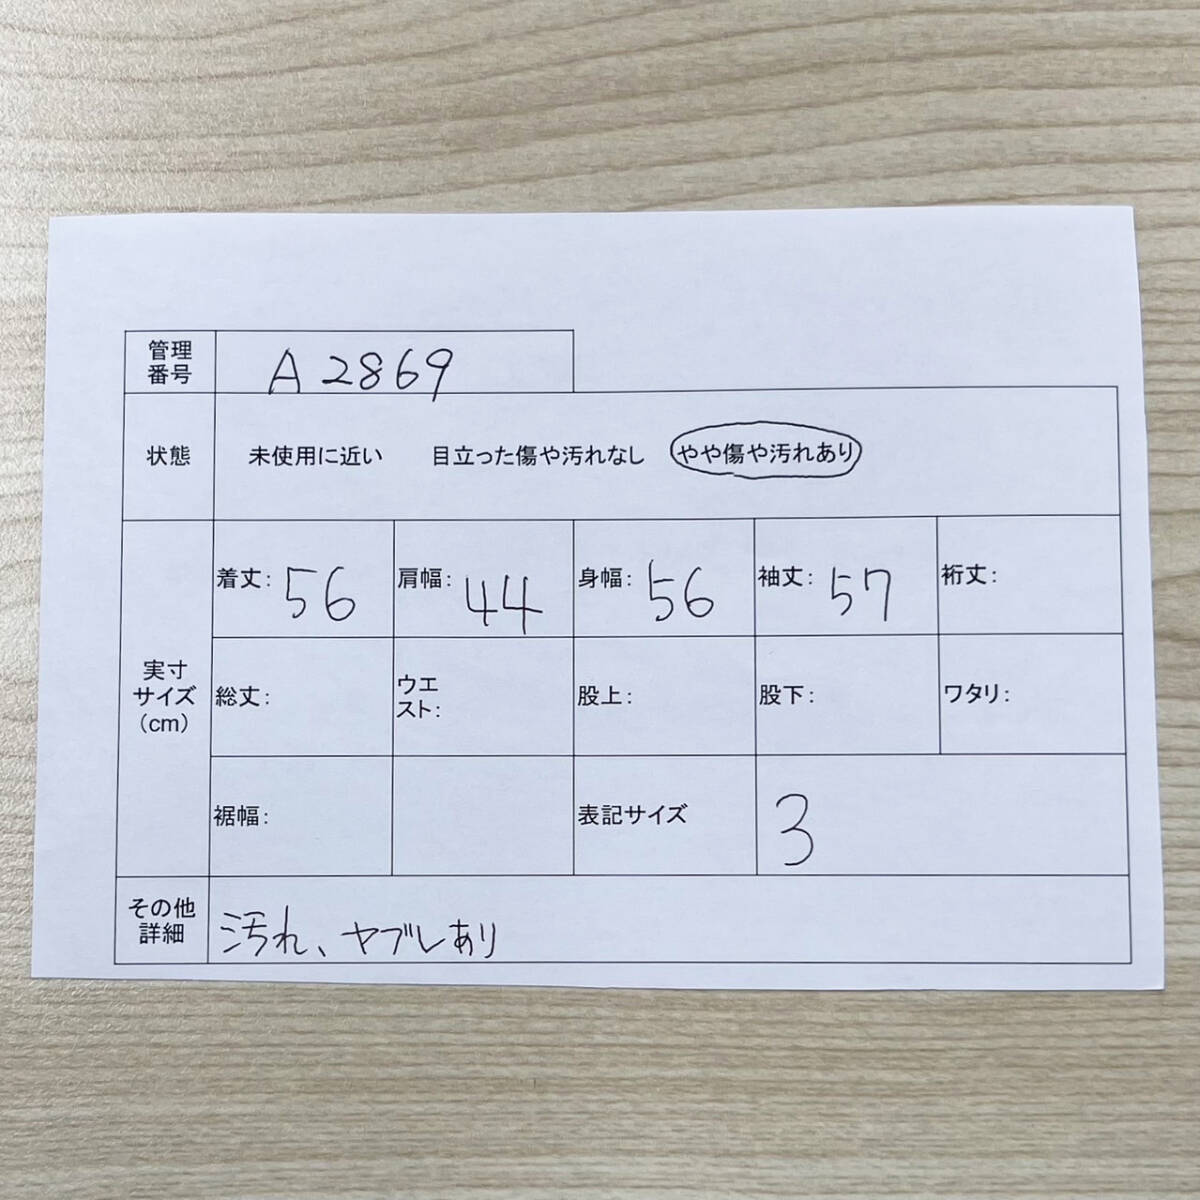 管理
番号
A2869
状態
未使用に近い 目立った傷や汚れなし やや傷や汚れあり
実寸
サイズ
(cm)
着丈: 56 肩幅: 44 身幅: 56 袖丈: 57 裄丈:
総丈: ウエ
スト: 股上: 股下: ワタリ:
裾幅: 表記サイズ 3
その他
詳細
汚れ、ヤブレあり